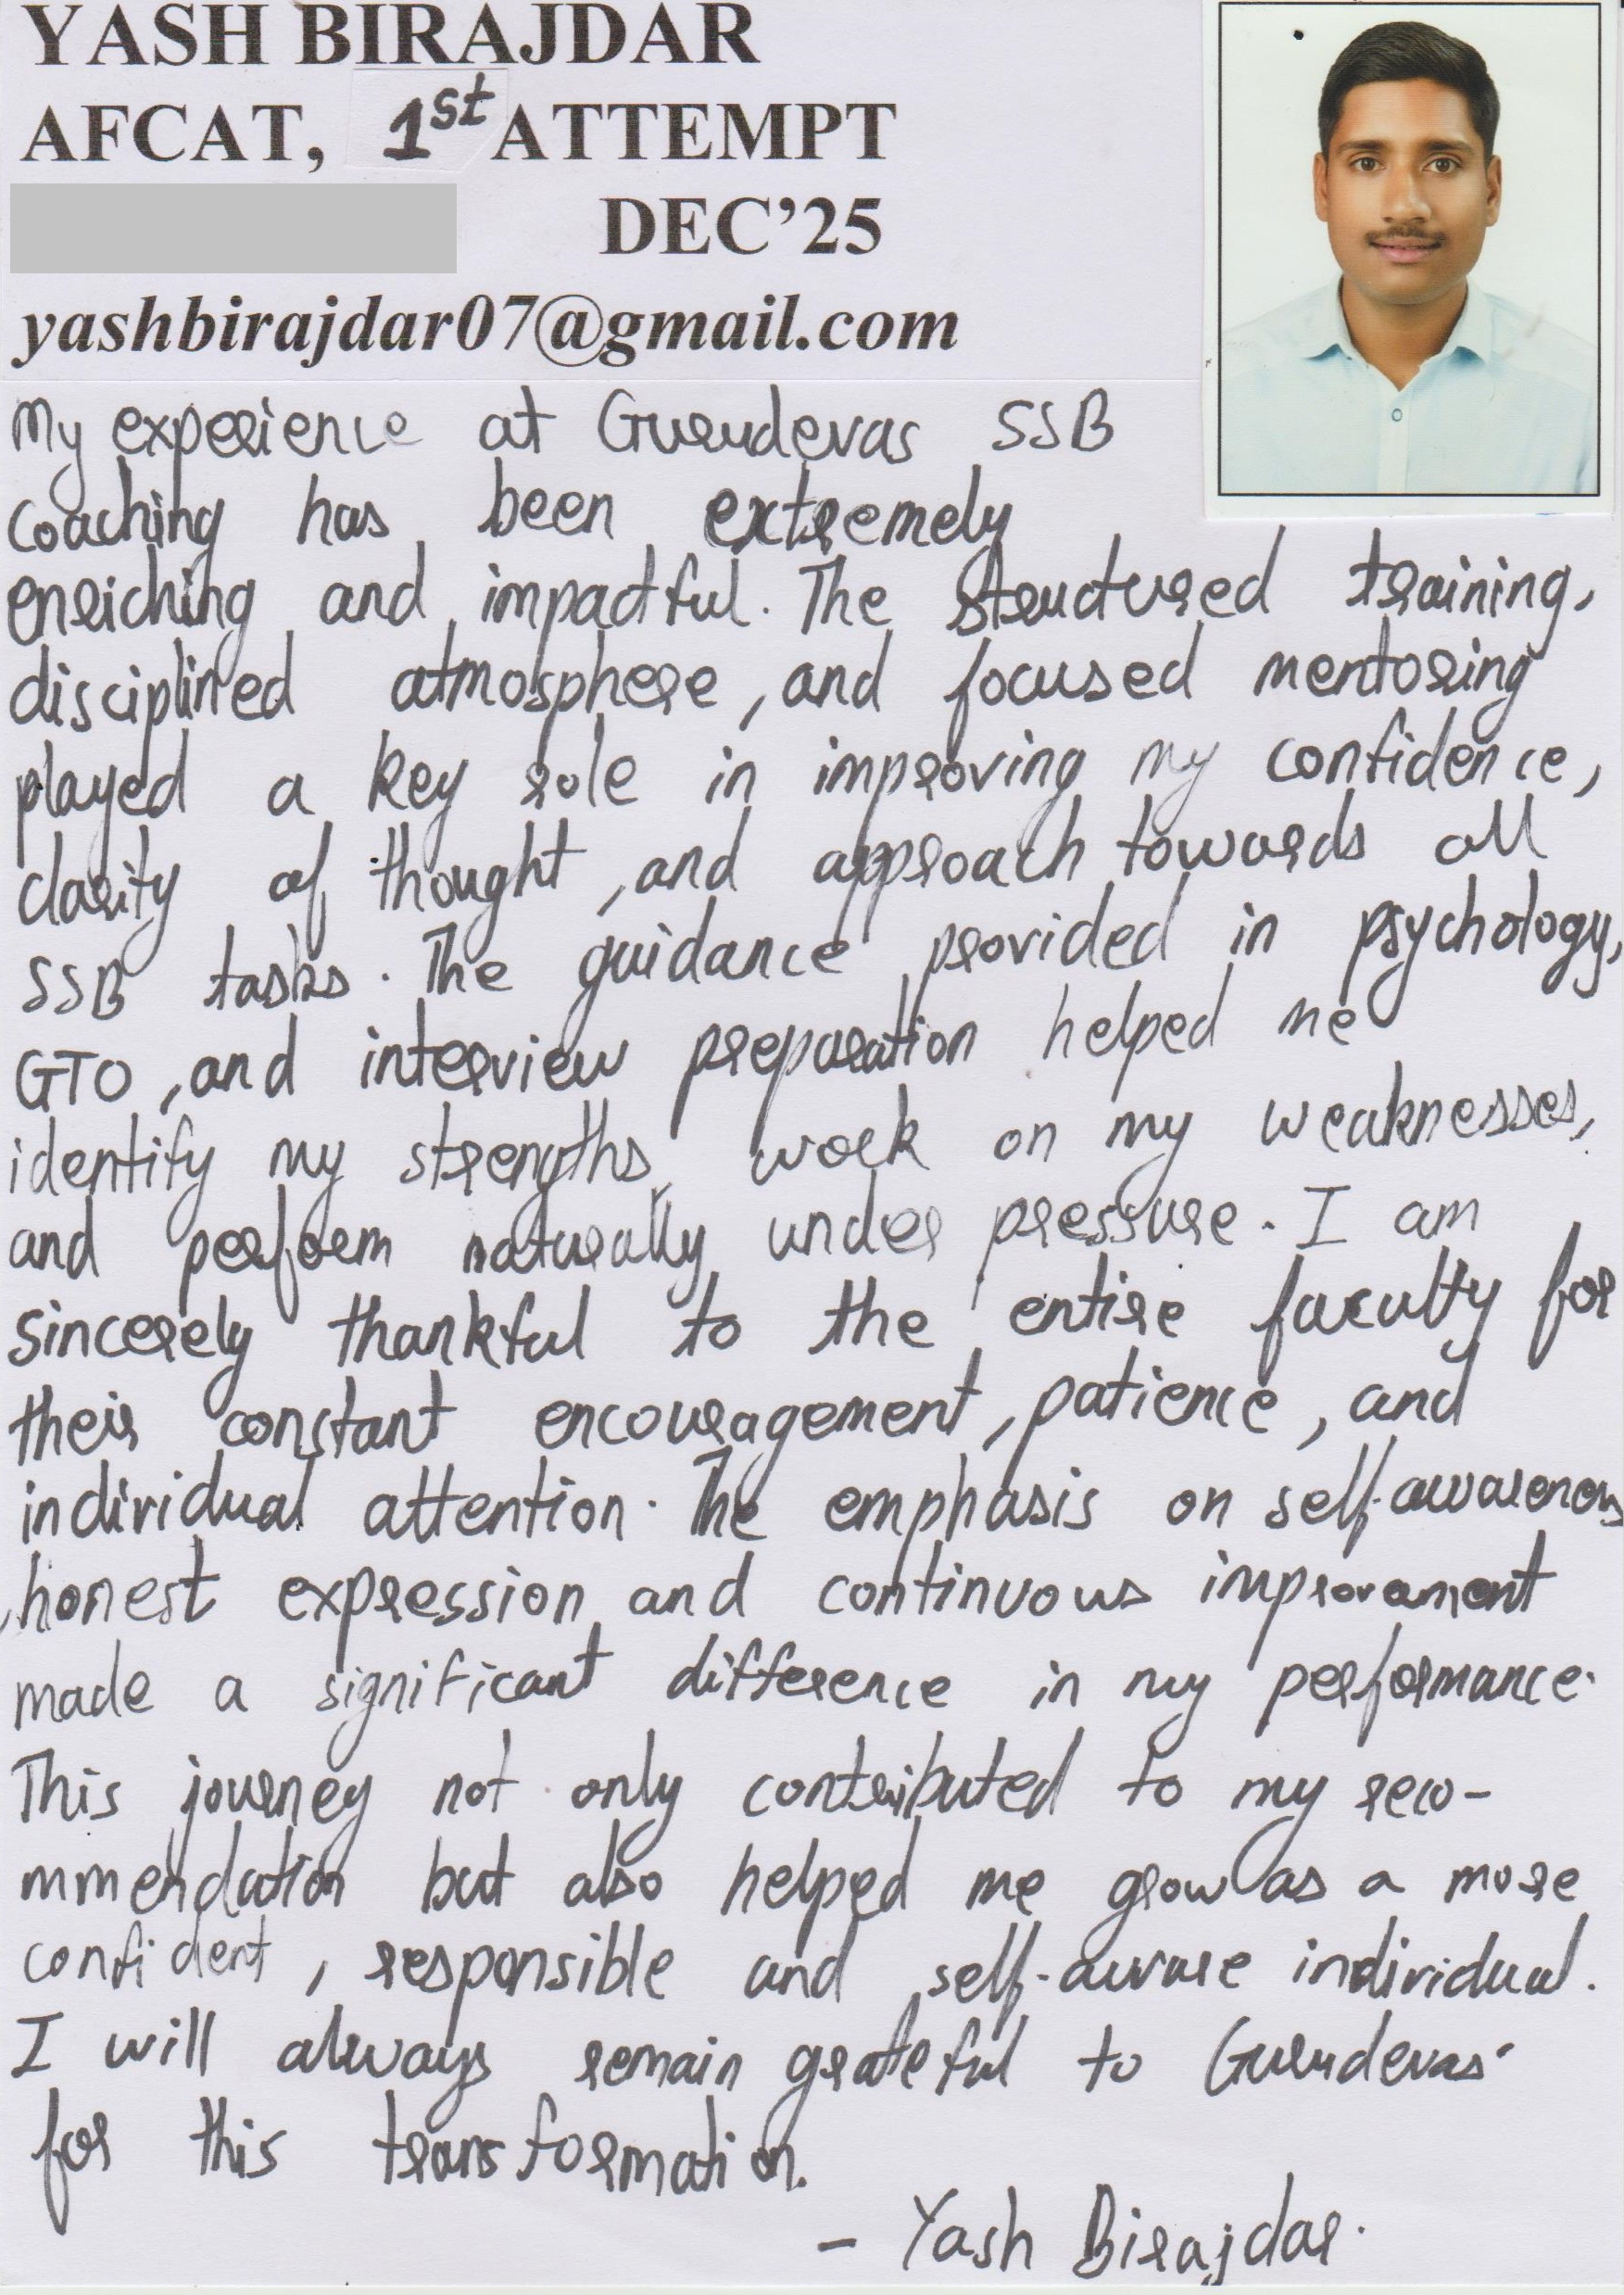 YASH BIRAJDAR
AFCAT, 1st ATTEMPT
DEC'25
yashbirajdar07@gmail.com
My experience at Gurudevas SSB
coaching has been extremely
enriching and impactful. The structured training,
disciplined atmosphere, and focused mentoring
played a key role in improving my confidence,
clarity of thought, and approach towards all
SSB tasks. The guidance provided in psychology,
GTO, and interview preparation helped me
identify my strengths, work on my weaknesses,
and perform naturally under pressure. I am
sincerely thankful to the entire faculty for
their constant encouragement, patience, and
individual attention. The emphasis on self-awareness
, honest expression, and continuous improvement
made a significant difference in my performance.
This journey not only contributed to my reco-
mmendation but also helped me grow as a more
confident, responsible and self-aware individual.
I will always remain grateful to Gurudevas
for this transformation.
- Yash Birajdar.